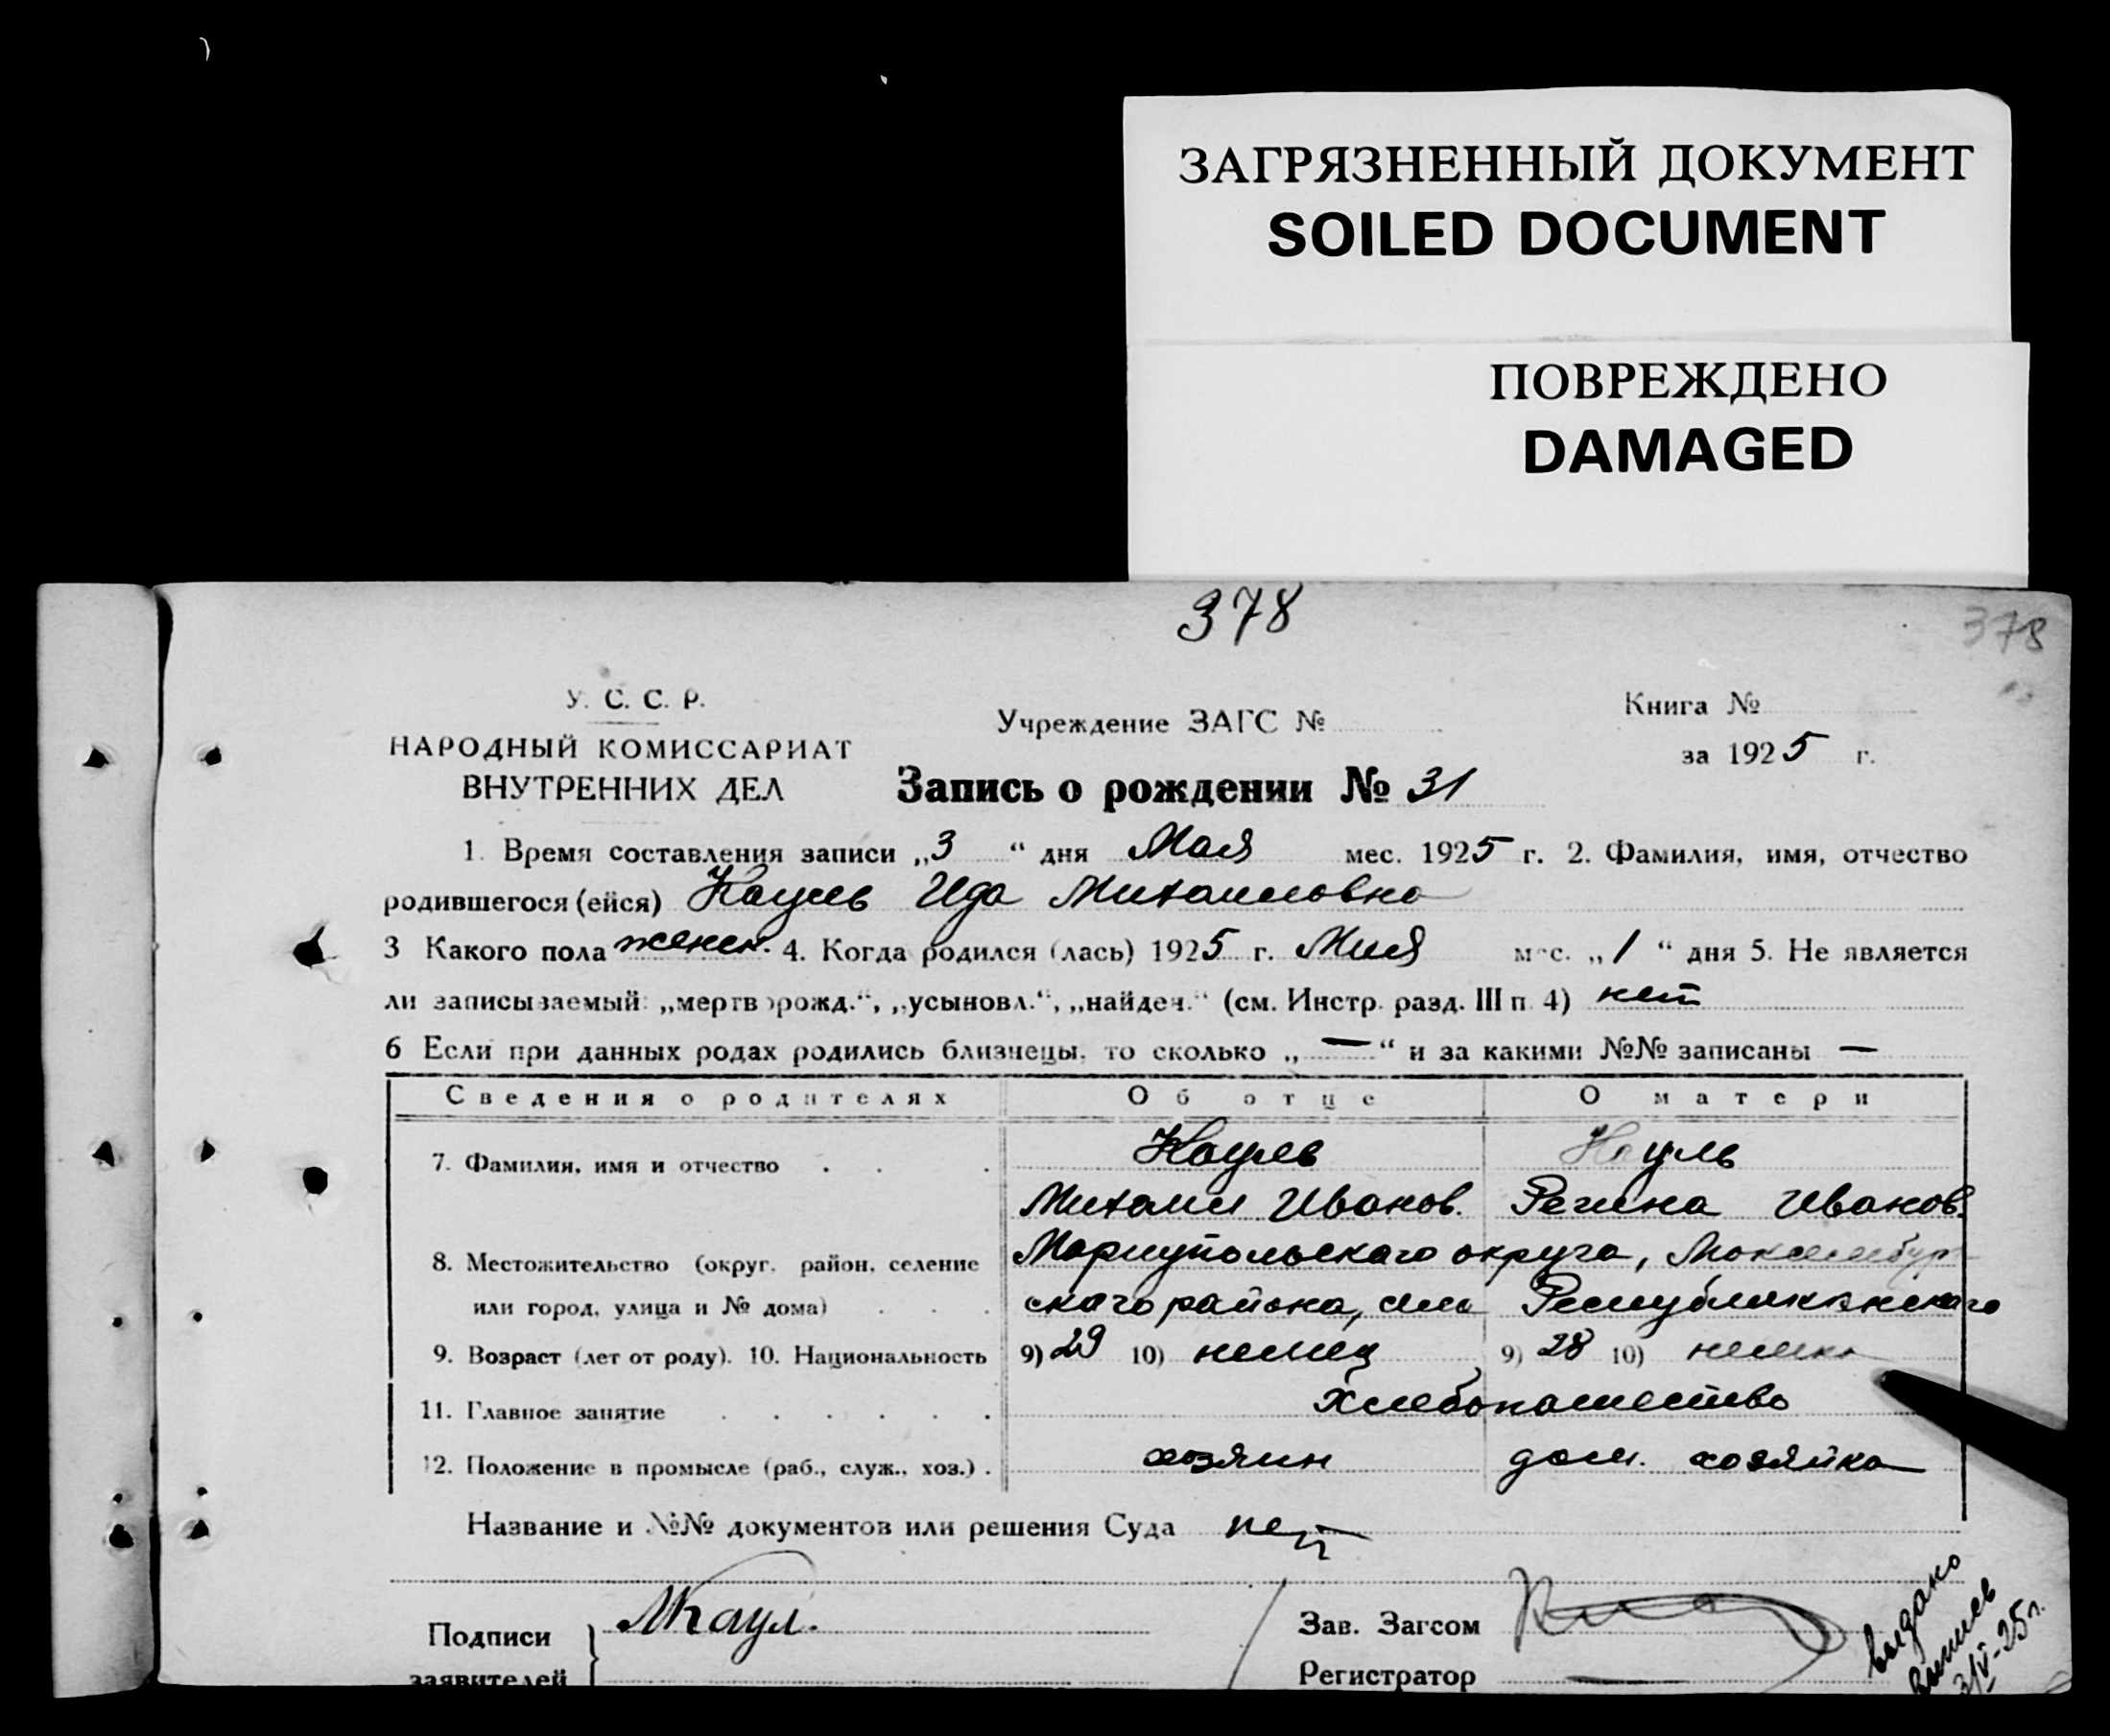 ЗАГРЯЗНЕННЫЙ ДОКУМЕНТ
SOILED DOCUMENT
ПОВРЕЖДЕНО
DAMAGED
378
378
У. С. С. Р.
НАРОДНЫЙ КОМИССАРИАТ
ВНУТРЕННИХ ДЕЛ
Учреждение ЗАГС №
Книга №
за 1925 г.
Запись о рождении № 31
1. Время составления записи „3“ дня Мая мес. 1925 г. 2. Фамилия, имя, отчество
родившегося (ейся) Кауль Ида Михаиловна
3 Какого пола женск. 4. Когда родился (лась) 1925 г. Мая мес. „1“ дня 5. Не является
ли записываемый: „мертворожд.“, „усыновл.“, „найден.“ (см. Инстр. разд. III п. 4) нет
6 Если при данных родах родились близнецы, то сколько „—“ и за какими №№ записаны —
Сведения о родителях Об отце О матери
7. Фамилия, имя и отчество . . . Кауль Кауль
Михаил Иванов. Регина Иванов.
8. Местожительство (округ, район, селение Мариупольскаго округа,
или город, улица и № дома) . . . скаго района, села Республиканскаго
9. Возраст (лет от роду). 10. Национальность 9) 29 10) немец 9) 28 10) немка
11. Главное занятие . . . . . . Хлебопашество
12. Положение в промысле (раб., служ., хоз.) . хозяин дом. хозяйка
Название и №№ документов или решения Суда нет
Подписи
заявителей
МКаул.
Зав. Загсом
Регистратор —
выдано
выпись
3/V-25г.